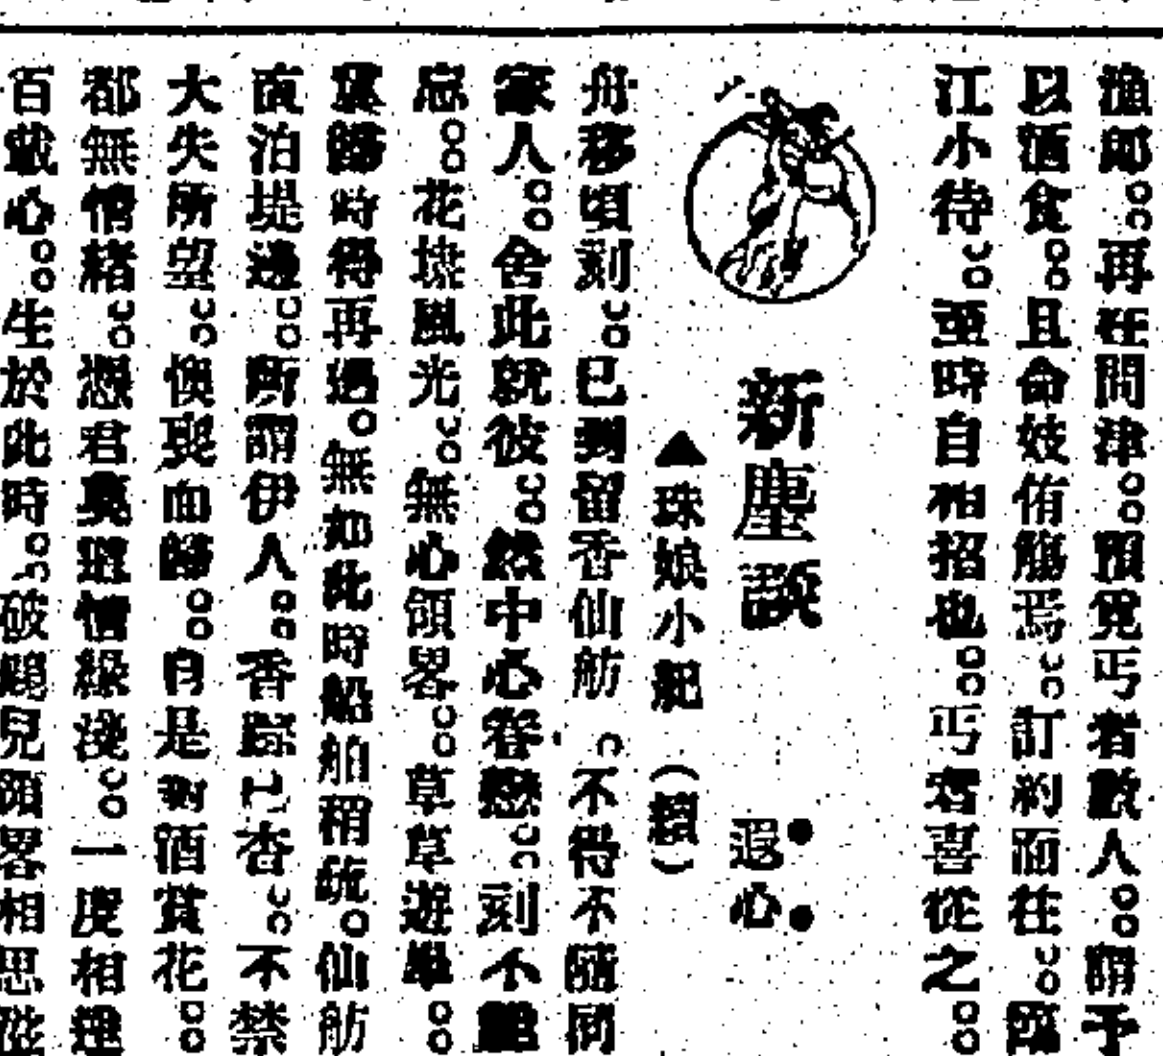 漁郎。再在問津。預兌丐者數人。謂予
以酒食。且命妓侑觴焉。訂約而往。臨
江小待。至時自相招也。丐者喜從之。
新塵談
遐心
▲珠娘小記 (續)
舟移頃刻。已到留香仙舫。不得不隨同
家人。舍此就彼。然中心眷戀。刻不能
忘。花埭風光。無心領畧。草草遊畢。
冀歸時得再過。無如此時船舶稍疏。仙舫
直泊堤邊。所謂伊人。香踪已杳。不禁
大失所望。懊喪而歸。自是對酒賞花。
都無情緒。憑君莫道情緣淺。一度相逢
百載心。生於此時。破題兒領畧相思滋